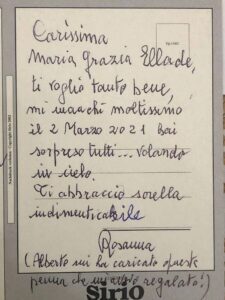 Carissima
Maria Grazia Ellade,
ti voglio tanto bene,
mi manchi moltissimo
il 2 Marzo 2021 hai
sorpreso tutti... volando
in cielo.
Ti abbraccio sorella
indimenticabile
Rosanna
(Alberto mi ha caricato questa
penna che mi aveva regalato!)
sirio